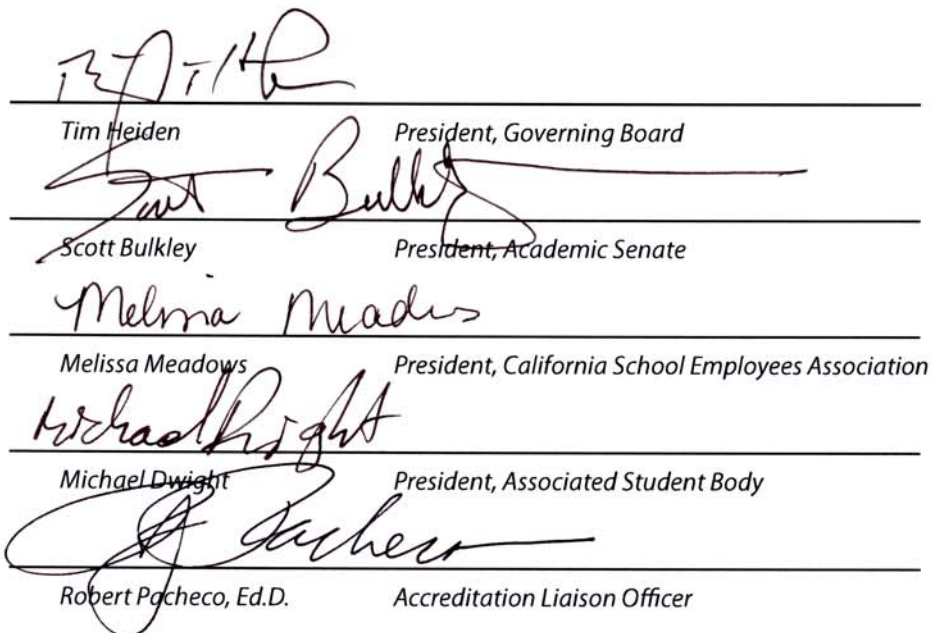 Tim Heiden President, Governing Board
Scott Bulkley
Scott Bulkley President, Academic Senate
Melissa Meadows
Melissa Meadows President, California School Employees Association
Michael Dwight
Michael Dwight President, Associated Student Body
Pacheco
Robert Pacheco, Ed.D. Accreditation Liaison Officer